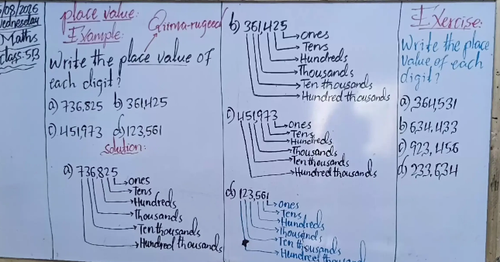 5/08/2025
Wednesday
Maths
class:5B
place value:
Example:
Write the place value of
each digit?
a) 736,825 b) 361,425
c) 451,973 d) 123,561
Solution:
a) 736,825
ones
Tens
Hundreds
Thousands
Ten thousands
Hundred thousands
b) 361,425
ones
Tens
Hundreds
Thousands
Ten thousands
Hundred thousands
c) 451,973
ones
Tens
Hundreds
Thousands
Ten thousands
Hundred thousands
d) 123,561
ones
Tens
Hundreds
Thousands
Ten thousands
Hundred thousands
Exercise:
Write the place
value of each
digit?
a) 364,531
b) 634,433
c) 923,456
d) 233,634